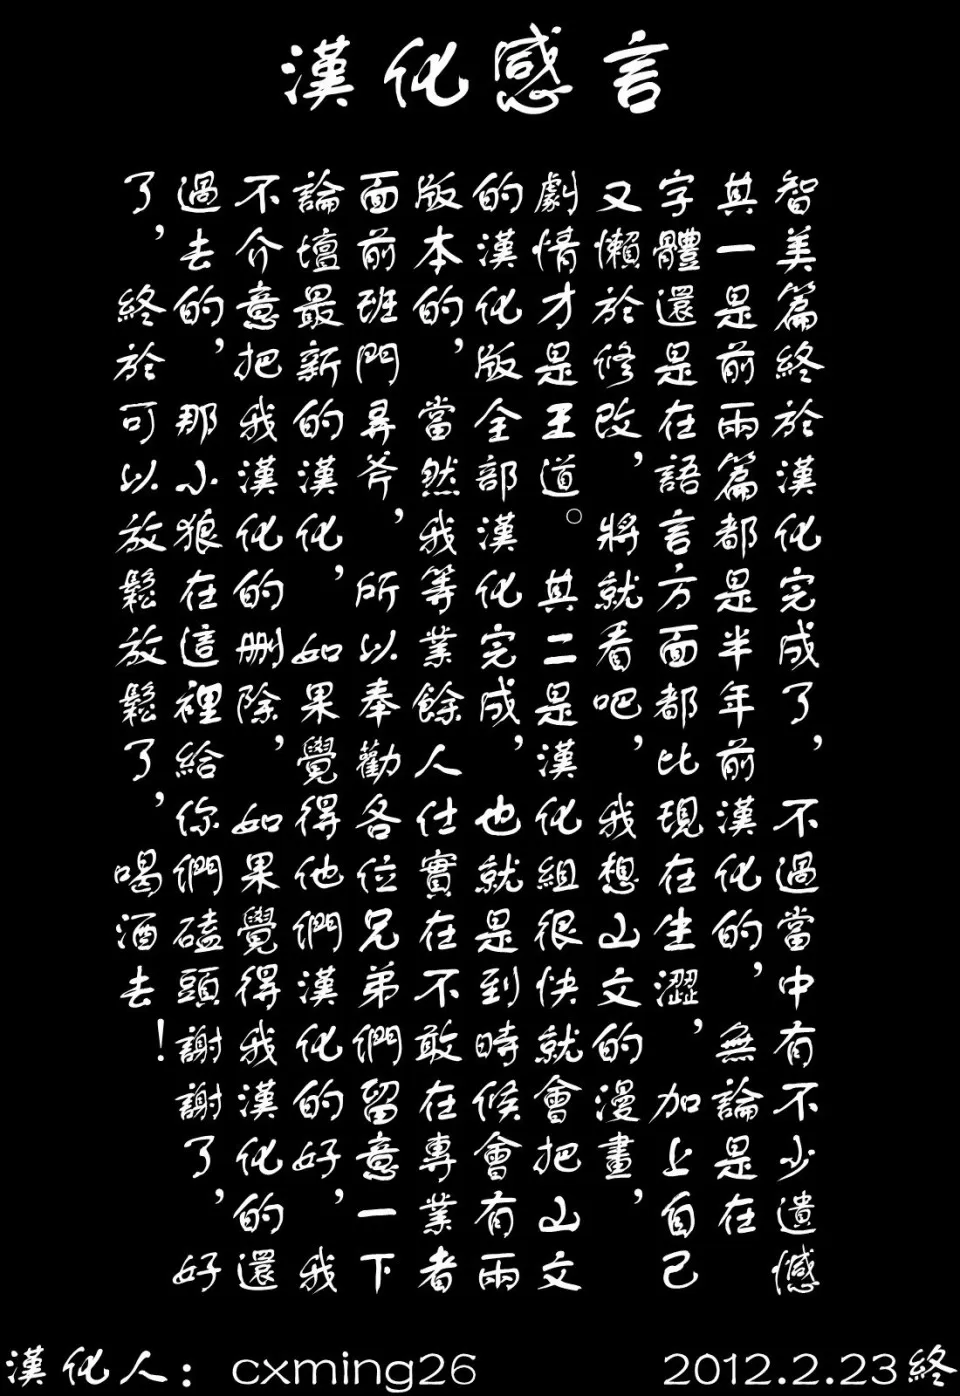 漢化感言
智美篇終於漢化完成了，不過當中有不少遺憾
其一是前兩篇都是半年前漢化的，無論是在
字體還是在語言方面都比現在生澀，加上自己
又懶於修改，將就看吧，我想山文的漫畫，
劇情才是王道。其二是漢化組很快就會把山文
的漢化版全部漢化完成，也就是到時候會有兩
版本的，當然我等業餘人仕實在不敢在專業者
面前班門弄斧，所以奉勸各位兄弟們留意一下
論壇最新的漢化，如果覺得他們漢化的好，我
不介意把我漢化的刪除，如果覺得我漢化的還
過去的，那小狼在這裡給你們磕頭謝謝了，好
了，終於可以放鬆放鬆了，喝酒去！
漢化人：cxming26
2012.2.23終